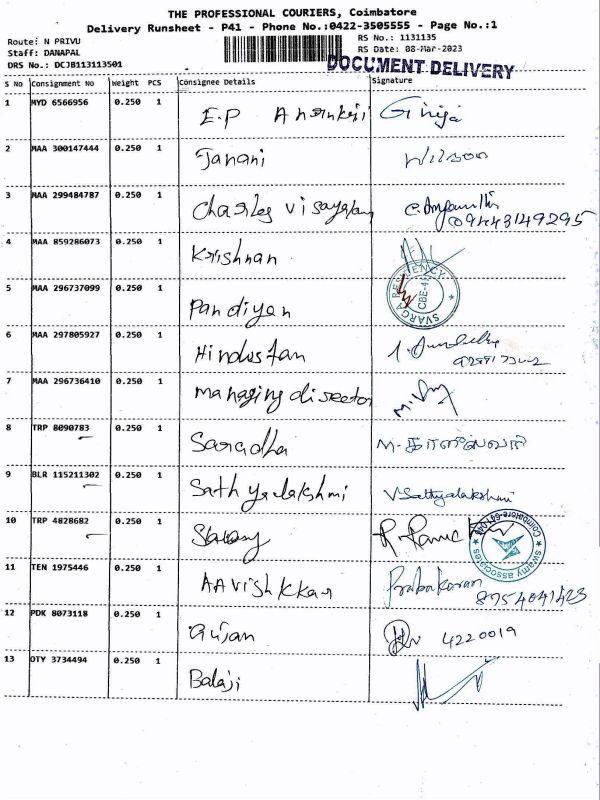 THE PROFESSIONAL COURIERS, Coimbatore
Delivery Runsheet - P41 - Phone No.:0422-3505555 - Page No.:1
Route: N PRIVU
RS No.: 1131135
Staff: DANAPAL
RS Date: 08-Mar-2023
DRS No.: DCJB113113501
DOCUMENT DELIVERY
S No Consignment No Weight PCS Consignee Details Signature
1 MYD 6566956 0.250 1 E.P Girija
2 MAA 300147444 0.250 1 Janani Wilson
3 MAA 299484787 0.250 1 Charles
09443149295
4 MAA 859286073 0.250 1 Krishnan
SVARGA RESIDENCY CBE-41
5 MAA 296737099 0.250 1 Pandiyan
6 MAA 297805927 0.250 1 Hindustan
7 MAA 296736410 0.250 1 Managing director
8 TRP 8090783 0.250 1 Saradha
9 BLR 115211302 0.250 1 Sathyalakshmi V Sathyalakshmi
10 TRP 4828682 0.250 1
swamy associates Coimbatore-641041
11 TEN 1975446 0.250 1 AAvishkkar Prabakaran
8754041423
12 PDK 8073118 0.250 1 4220019
13 OTY 3734494 0.250 1 Balaji